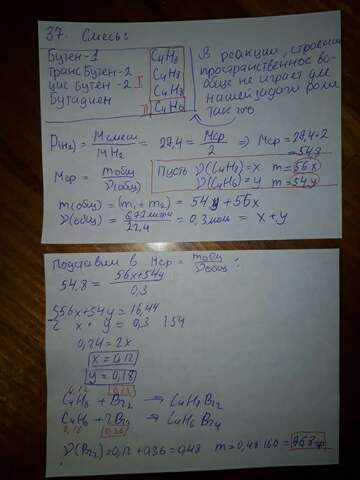 37. Смесь:
Бутен-1 C4H8
Транс Бутен-2 C4H8
цис Бутен-2 I C4H8
Бутадиен II C4H6
В реакции, строении
пространственное во-
обще не играет для
нашей задачи роли
так что
D(H2) = Mсмеси/MH2 = 27,4 = Mср/2 => Mср = 27,4·2
= 54,8
Mср = mобщ/ν(общ)
Пусть ν(C4H8) = x m = 56x
ν(C4H6) = y m = 54y
m(общ) = (m1 + m2) = 54y + 56x
ν(общ) = 6,72/22,4 = 0,3 моль = x + y
Подставим в Mср = mобщ/νобщ:
54,8 = 56x+54y/0,3
56x+54y = 16,44
x + y = 0,3 1·54
0,24 = 2x
x = 0,12
y = 0,18
0,12 0,12
C4H8 + Br2 → C4H8Br2
C4H6 + 2Br2 → C4H6Br4
0,18 0,36
ν(Br2) = 0,12 + 0,36 = 0,48 m = 0,48·160 = 76,8 гр